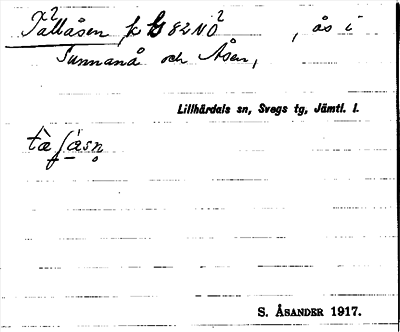 X²
Tallåsen, k 82NÖ², ås i
Sunnanå och Åsen,
Lillhärdals sn, Svegs tg, Jämtl. l.
S. ÅSANDER 1917.